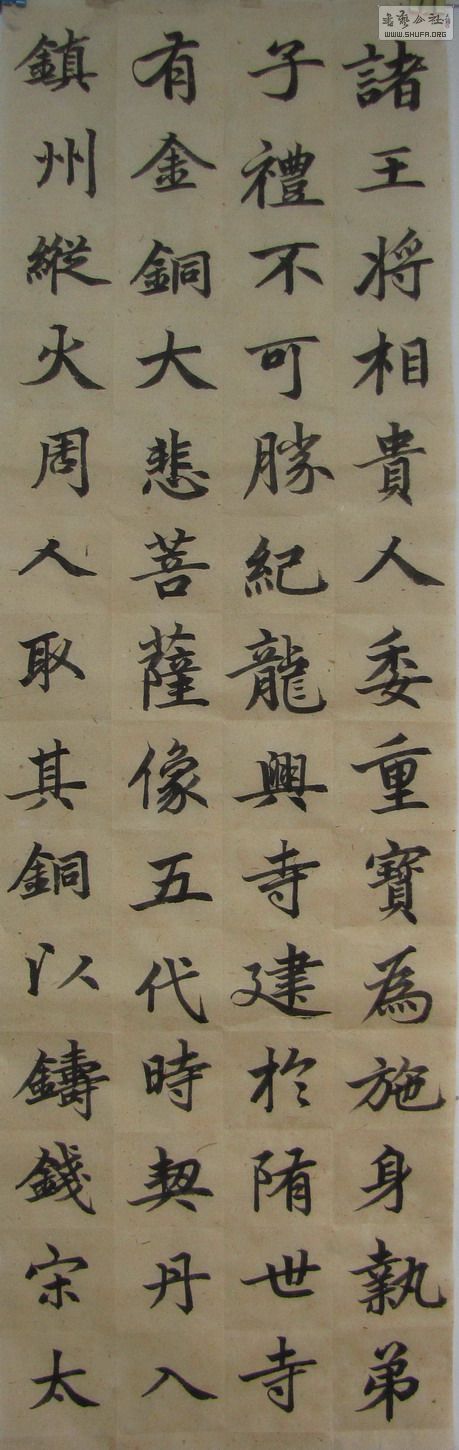 諸王將相貴人委重寶為施身執弟
子禮不可勝紀龍興寺建於隋世寺
有金銅大悲菩薩像五代時契丹入
鎮州縱火周人取其銅以鑄錢宋太
書藝公社
WWW.SHUFA.ORG